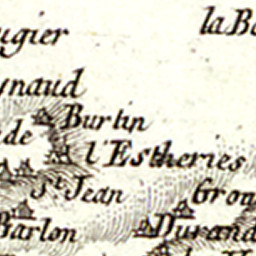 la B
ugier
ynaud
Burtin
de
l'Estheries
St. Jean
Grou
Barlon
Durand